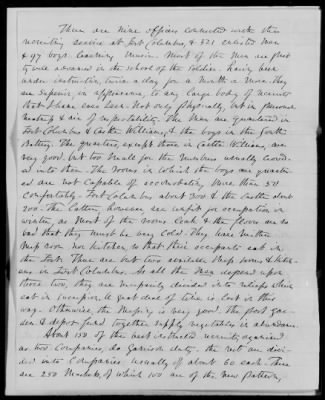 There are nine officers connected with the
recruiting service at Fort Columbus, & 521 enlisted men
& 97 boys learning music. Most of the men are pret-
ty well advanced in the school of the soldier, having been
under instruction, twice a day for a month or more. They
are superior in appearance, to any large body of recruits
that I have ever seen. Not only physically, but in personal
& air of respectability. The men are quartered in
Fort Columbus & Castle Williams, & the boys in the South
Battery. The quarters, except those in Castle Williams, are
very good, but too small for the numbers usually crowd-
ed into them. The rooms in which the boys are quarter-
ed are not capable of accommodating more than 50
comfortably. Fort Columbus about 300 & the Castle about
200. The latter however are unfit for occupation in
winter, as most of the rooms leak & the floors are so
bad that they must be very cold. They have neither
mess room nor kitchen, so that their occupants eat in
the Fort. There are but two available mess rooms & kitch-
ens in Fort Columbus. As all the men depend upon
these two, they are necessarily divided into reliefs which
eat in succession. A great deal of time is lost in this
way. Otherwise, the messing is very good. The post gar-
den & depot fund together supply vegetables in abundance.
About 150 of the best instructed recruits, organized
as two companies, do garrison duty. The rest are divi-
ded into companies usually of about 60 each. There
are 250 muskets, of which 100 are of the new pattern,